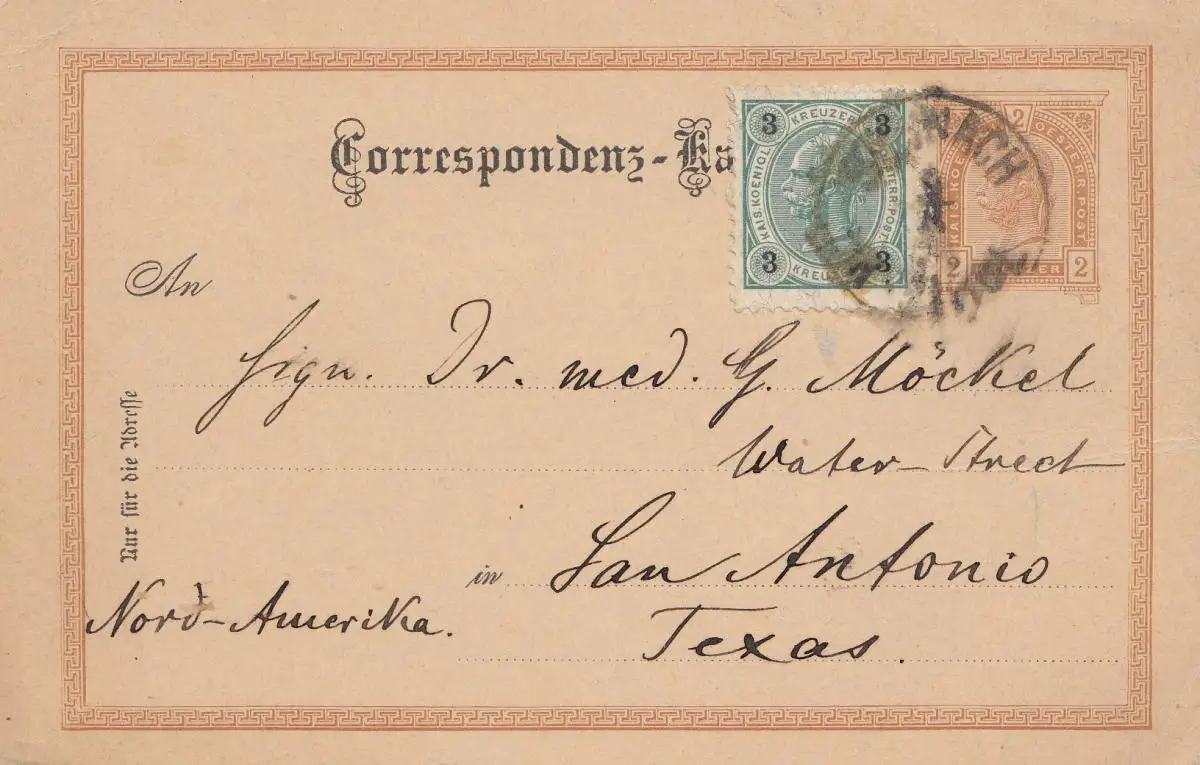 Correspondenz-Ka
3 KREUZER 3
KAIS. KOENIGL. OESTERR. POST
3 KREUZER 3
2
KAIS. KOENIGL. OESTERR. POST
2 KREUZER 2
An
Sign. Dr. med. G. Möckel
Water-Street
Nur für die Adresse
in San Antonio
Nord-Amerika.
Texas.